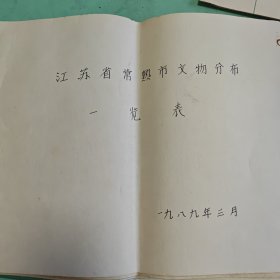 江苏省常熟市文物分布
一览表
一九八九年三月